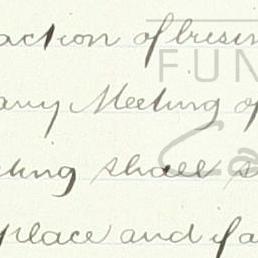 action of busin
any Meeting of
ting shall s
place and fa
FUN
Ca